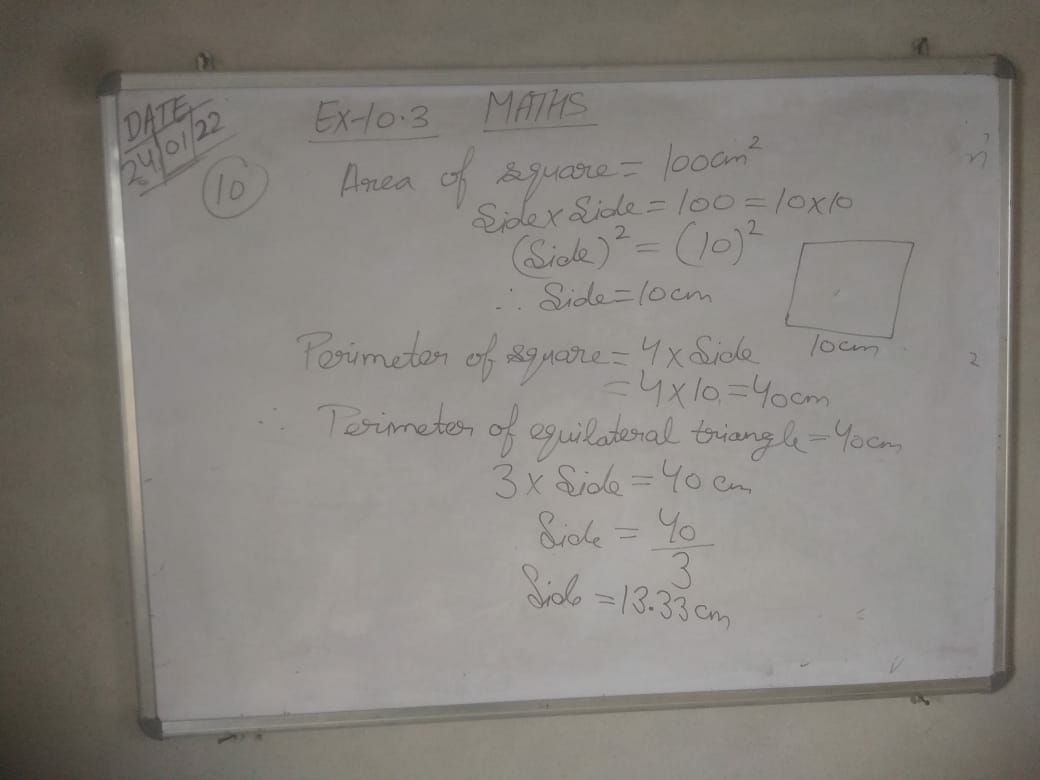 DATE
24/01/22
Ex-10.3 MATHS
10
Area of square = 100cm²
Side x Side = 100 = 10x10
(Side)² = (10)²
∴ Side = 10cm
10cm
Perimeter of square = 4 x Side
= 4 x 10 = 40cm
∴ Perimeter of equilateral triangle = 40cm
3 x Side = 40 cm
Side = 40/3
Side = 13.33 cm